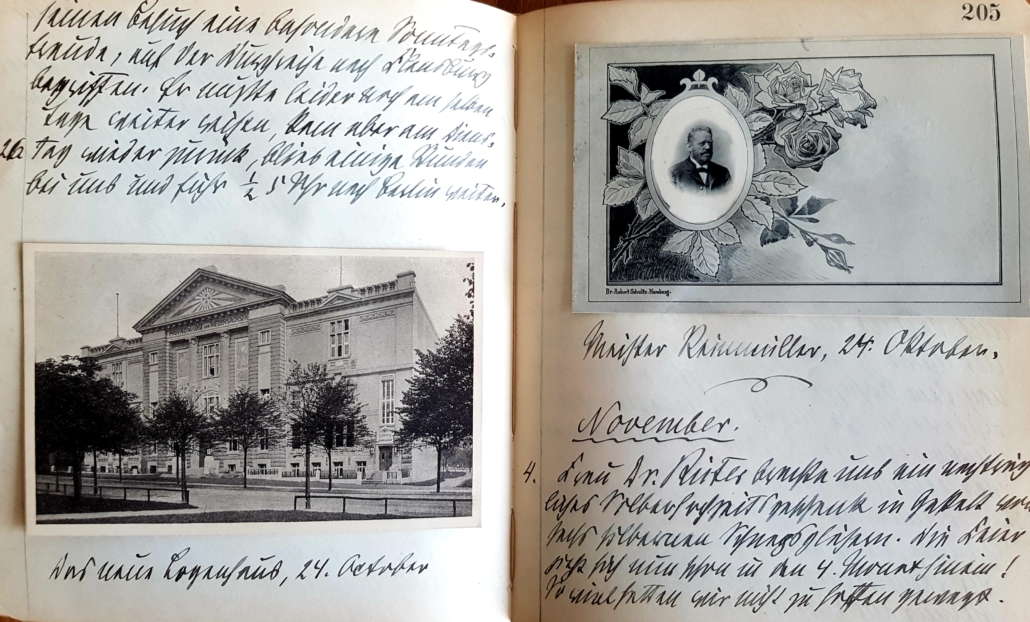 seinen Besuch eine besondere Sonntags-
freude, auf der Durchreise nach Flensburg
begriffen. Er mußte leider noch am selben
Tage weiter reisen, kam aber am Diens-
26. tag wieder zurück, blieb einige Stunden
bei uns und fuhr ½ 5 Uhr nach Berlin weiter.
Das neue Logenhaus, 24. October
205
Br. Robert Schultz-Hamburg.
Meister Reinmüller, 24. Oktober.
November.
4. Frau Dr. brachte uns ein nachträg-
liches Silberhochzeitsgeschenk in Gestalt von
sechs silbernen Schnapsgläsern. Die Feier
zieht sich nun schon in den 4. Monat hinein!
So viel hätten wir nicht zu hoffen gewagt.